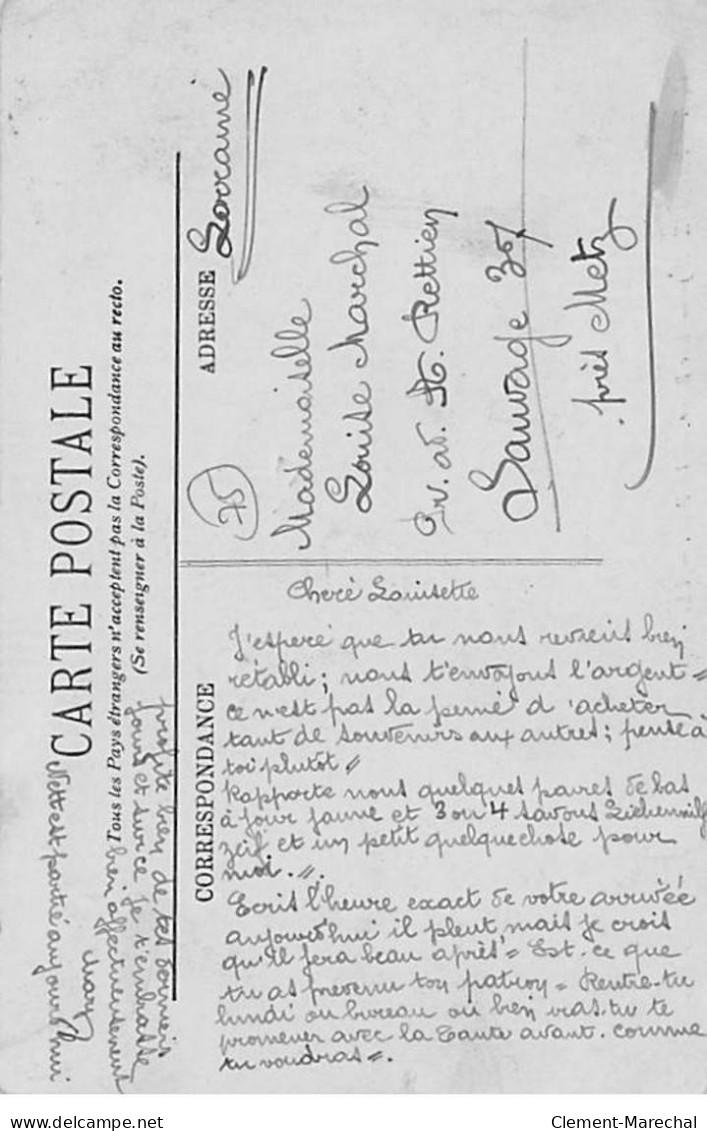 CARTE POSTALE
Tous les Pays étrangers n'acceptent pas la Correspondance au recto.
(Se renseigner à la Poste).
CORRESPONDANCE
ADRESSE
Lorraine
75
Mademoiselle
Louise Marchal
Rettien
Sauvage 35
près Metz
Cheré Louisette
J'espere que tu nous reviens bien
rétabli; nous t'envoyons l'argent =
ce n'est pas la peine d'acheter
tant de souvenirs aux autres; pense à
toi plutôt =
Rapporte nous quelques paires de bas
à jour jaune et 3 ou 4 savons
et un petit quelquechose pour
moi. =.
Ecris l'heure exact de votre arrivée
aujourd'hui il pleut, mais je crois
qu'il fera beau après = Est-ce que
tu as prevenu ton patron = Rentre-tu
lundi au bureau ou bien vas-tu te
promener avec la Tante avant. comme
tu voudras =.
profite bien de tes derniers
jours et je t'embrasse
bien affectueusement
Mary
est parti aujourd'hui
delcampe.net
Clement-Marechal